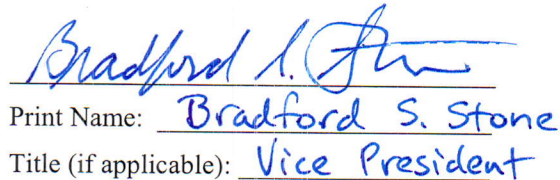 Bradford S. Stone
Print Name: Bradford S. Stone
Title (if applicable): Vice President